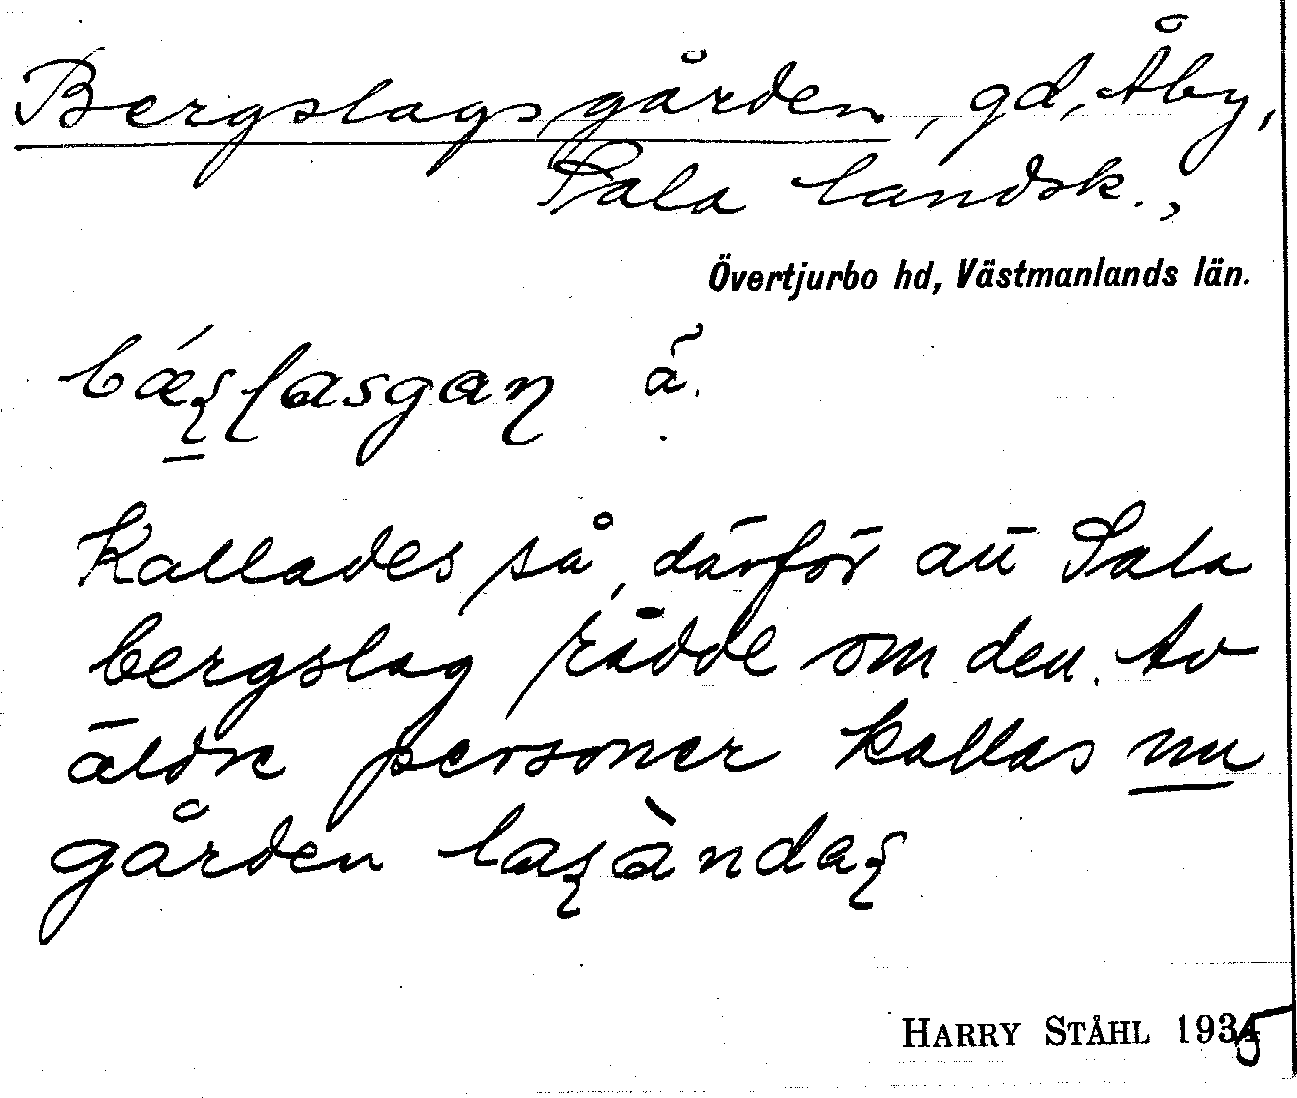 Bergslagsgården, gd, Åby,
Sala landsk.,
Övertjurbo hd, Västmanlands län.
ä.
Kallades så, därför att Sala
bergslag rådde om den. Av
äldre personer kallas nu
gården
HARRY STÅHL 1935